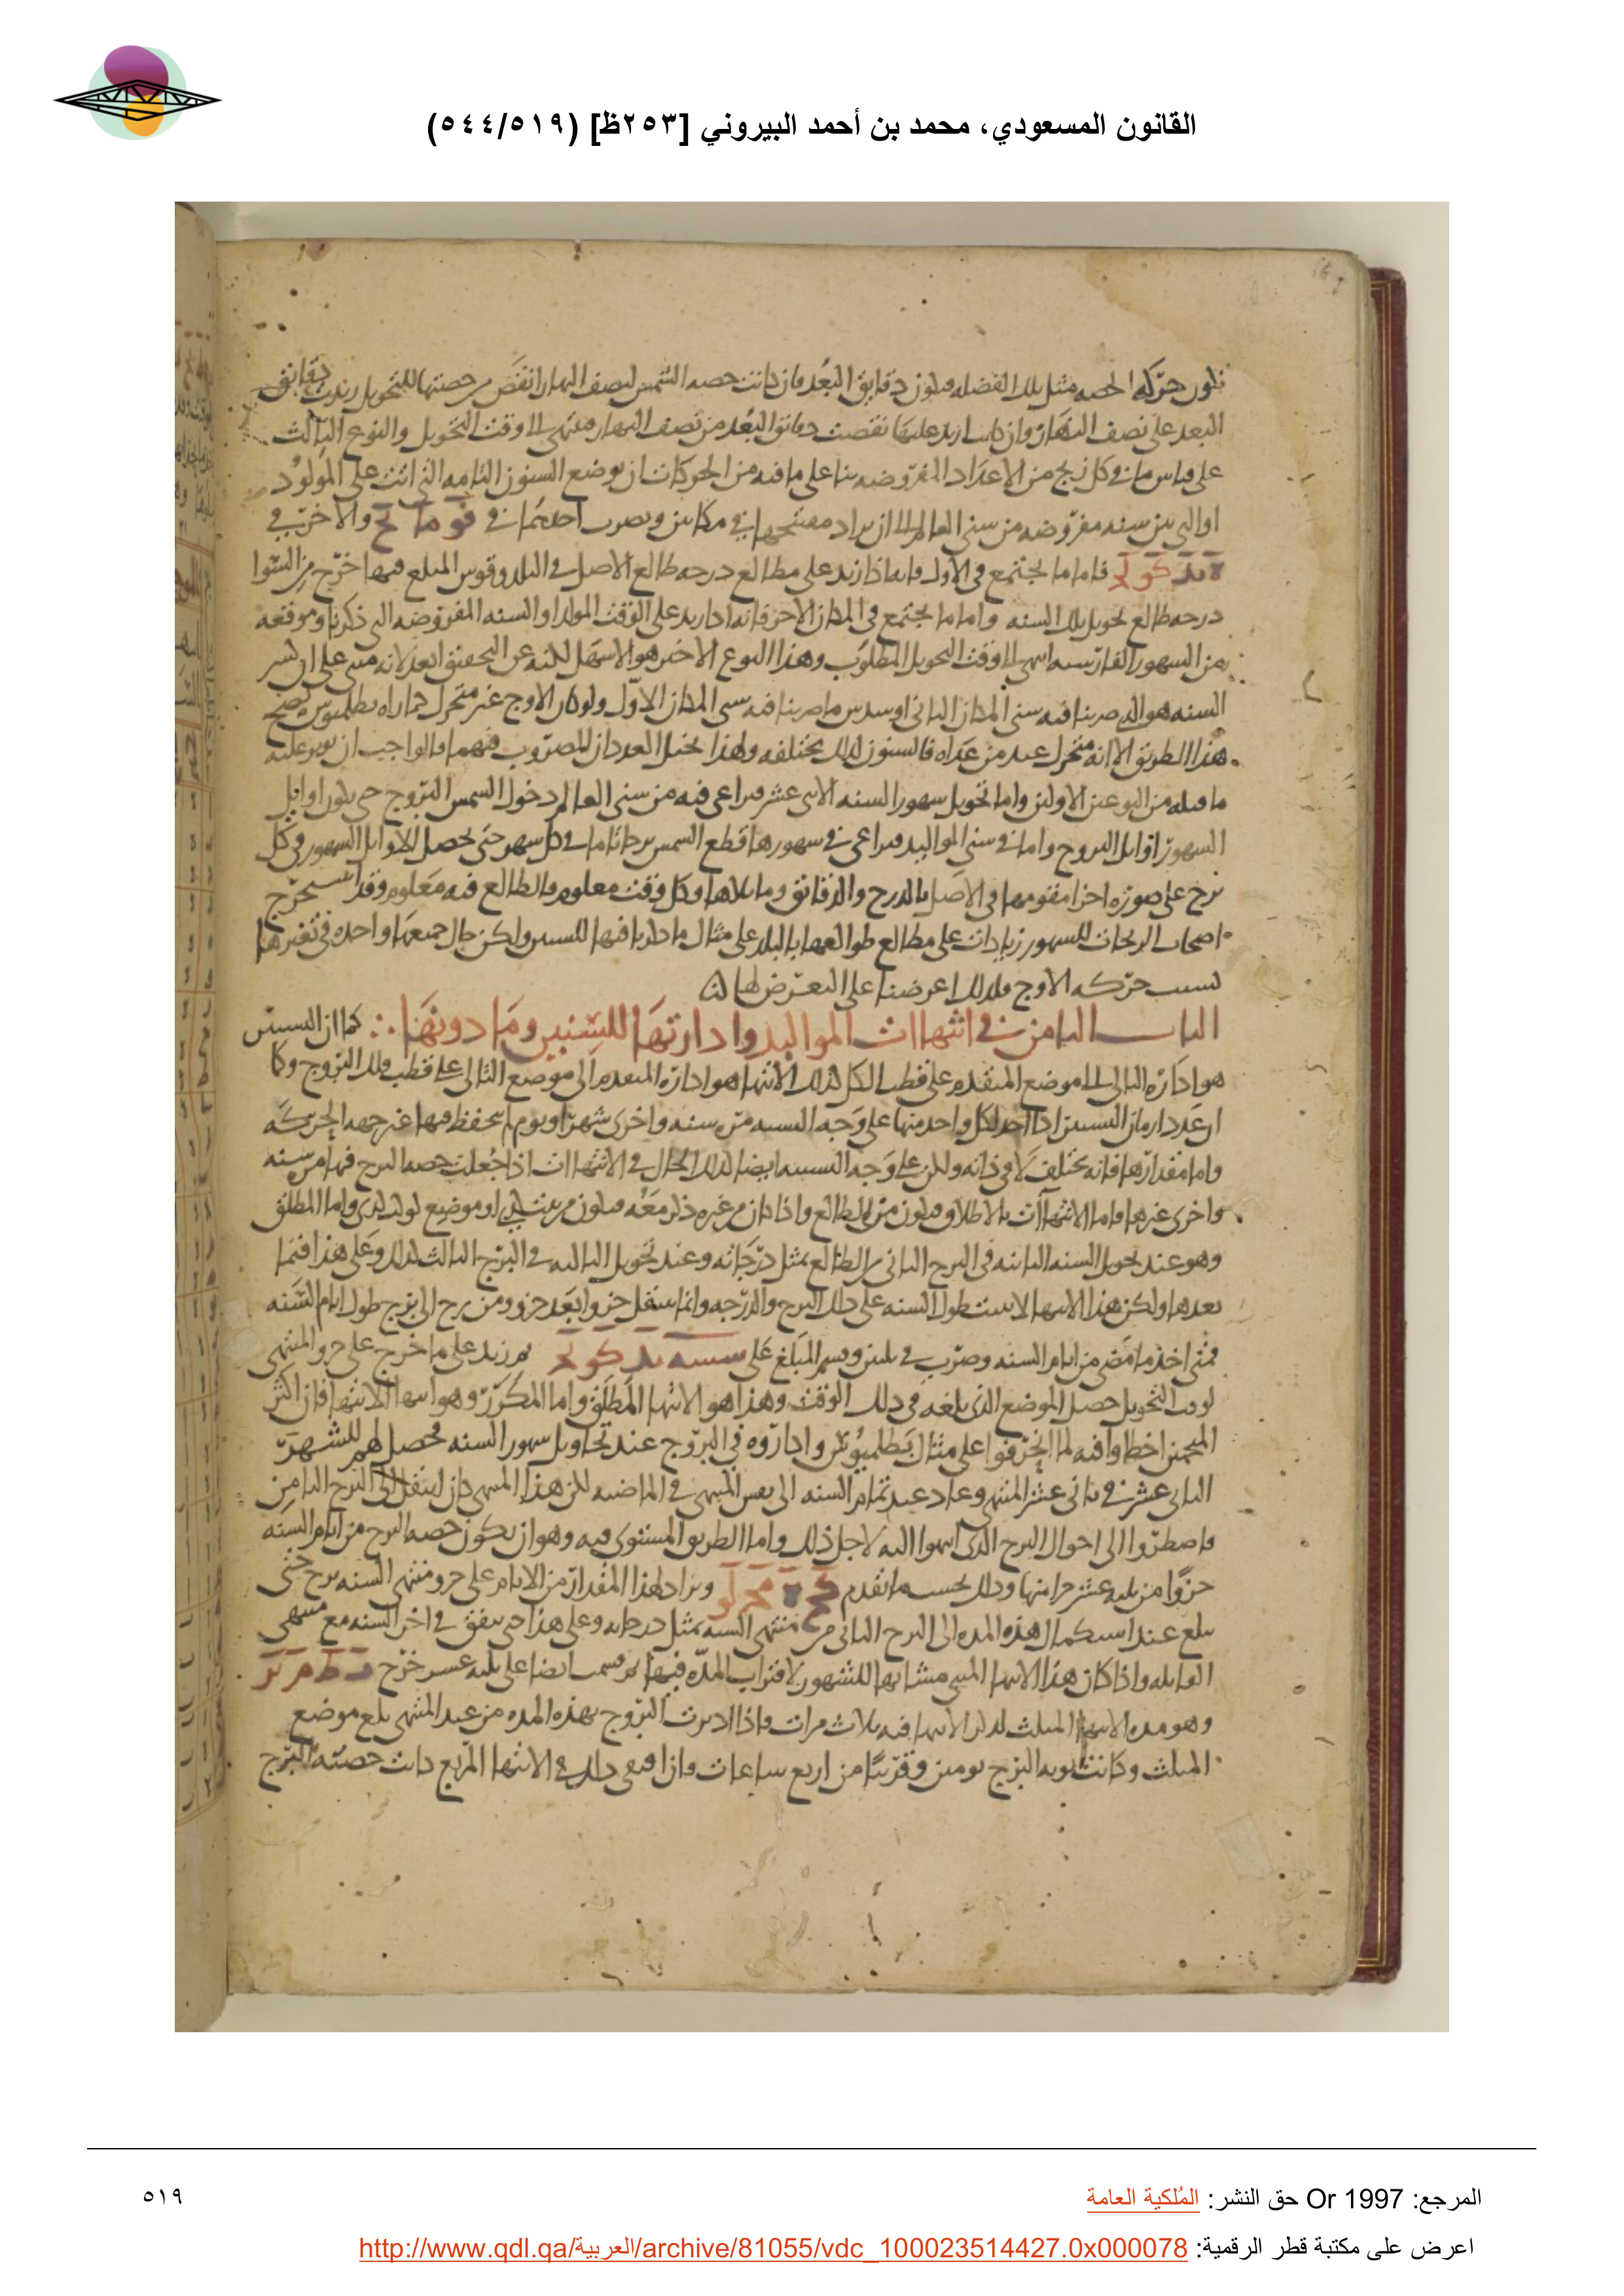 القانون المسعودي، محمد بن أحمد البيروني [٢٥٣ظ] (٥٤٤/٥١٩)
حركه الحصه مثل تلك الفضله دقايق البعد فان كانت حصه الشمس لنصف النهار انقص من حصتها للتحويل زيدت دقايق
البعد على نصف النهار وان نقصت دقائق البعد من نصف النهار وقت التحويل والنوع الثالث
على قياس ما في كل زيج من الاعداد المفروضه بنا على ما فيه من الحركات ان يوضع السنون التامه التي اتت على المولود
او التي بين سنه مفروضه من سنى العالم الى ان يراد في مكانين ويضرب احدهما في فو ما لح والاخر في
ه يد كو لح فاما ما يجتمع في الاول فانه اذا زيد على مطالع درجه طالع الاصل في البلد وقوس المبلغ فيها خرج من السوا
درجه طالع تحويل تلك السنه واما ما يجتمع في المكان الاخر فانه اذا زيد على الوقت المولد او السنه المفروضه التي ذكرنا وموقعه
من الشهور وقت التحويل المطلوب وهذا النوع الاخير هو الاسهل لكنه عن التحقيق ابعد لانه مبنى على ان كسر
السنه هو الذي ضربنا فيه سنى المكان الثاني او سدس ما ضربنا فيه سنى المكان الاول ولو كان الاوج غير متحرك كما راه بطلميوس لصح
هذا الطريق الا انه متحرك عند من عداه فالسنون لذلك مختلفه ولهذا يختل العددان المضروب فيهما فالواجب ان يوثر عليه
ما قبله من النوعين الاولين واما تحويل شهور السنه الاثنى عشر فيراعى فيه من سنى العالم دخول الشمس البروج حتى يكون اوايل
الشهور اوايل البروج واما في سنى المواليد فيراعى في شهورها قطع الشمس برجا تاما في كل شهر حتى يحصل لاوايل الشهور في كل
برج على صوره اجزا مقومها في الاصل بالدرج والدقائق وما تلاها وكل وقت معلوم فالطالع فيه معلوم وقد استخرج
اصحاب الزيجات للشهور زيادات على مطالع طوالعها بالبلد على مثال ما ذكرنا فيها للسنين ولكن حال جميعها واحده في تغيرها
بسبب حركه الاوج فلذلك اعرضنا على التعرض لها
الباب الثامن في انتهاات المواليد وادارتها للسنين وما دونها ∴ كما ان التسيير
هو اداره التالى الى موضع المتقدم على قطب الكل كذلك الانتها هو اداره المتقدم الى موضع التالى على قطب فلك البروج وكما
ان عدد ازمان التسيير اذا اخذ لكل واحد منها على وجه التسييه مره سنه واخرى شهر او يوم لم يحفظ فيها غير جهه الحركه
واما مقدارها فانه يختلف لا في ذاته ولكن على وجه التسييه ايضا كذلك الحال في الانتهاات اذا جعلت حصه البرج فيها مره سنه
واخرى غيرها فاما الانتهاات بالاطلاق فيكون من الطالع واذا كان من غيره ذكر معه فيكون من بيت او موضع كوكب واما المطلق
وهو عند تحويل السنه الثانيه في البرج الثاني من الطالع بمثل درجاته وعند تحويل الثالثه في البرج الثالث كذلك وعلى هذا فيما
بعدها ولكن هذا الانتها لا يثبت طول السنه على ذلك البرج والدرجه وانما ينتقل جزوا بعد جزو ومن برج الى برج طول ايام السنه
فمتى اخذ ما مضى من ايام السنه وضرب في ثلثين وقسم المبلغ على شسه يد كو لح ثم زيد على ما خرج على جزو المنتهى
لوقت التحويل حصل الموضع الذي بلغه في ذلك الوقت وهذا هو الانتها المطلق واما المكرر وهو انتها الانتها فان اكثر
المنجمين اخطاوا فيه لما انحرفوا على مثال بطلميوس واداروه في البروج عند تحاويل شهور السنه فحصل لهم للشهر
الثاني عشر في ثاني عشر المنتهى وعاد عند تمام السنه الى نفس المنتهى في الماضيه لكن هذا المنتهى كان انتقل الى البرج الثامن
فاضطروا الى احوال البرج الذي انتهوا اليه لاجل ذلك واما الطريق المستوى فيه وهو ان يكون حصه البرج من ايام السنه
جزوا من ثلثه عشر جزا منها وذلك بحسب ما تقدم كح ه مح لو ويزاد لهذا المقدار من الايام على جزو منتهى السنه برج حتى
يبلغ عند استكمال هذه المده الى البرج الثاني من منتهى السنه بمثل درجاته وعلى هذا حتى يتفق في اخر السنه مع منتهى
القابله واذا كان هذا الانتها المثنى مشابها للشهور لاقتراب المده فيها ثم قسمت ايضا على ثلثه عشر خرج
وهو مده الانتها المثلث لذكر الانتها فيه ثلاث مرات واذا اديرت البروج بهذه المده من عند المنتهى بلغ موضع
المثلث وكانت نوبه البرج يومين وقريبا من اربع ساعات وان اقتفى ذلك في الانتها المربع كانت حصته البرج
المرجع: Or 1997 حق النشر: المُلكية العامة
٥١٩
اعرض على مكتبة قطر الرقمية: http://www.qdl.qa/العربية/archive/81055/vdc_100023514427.0x000078